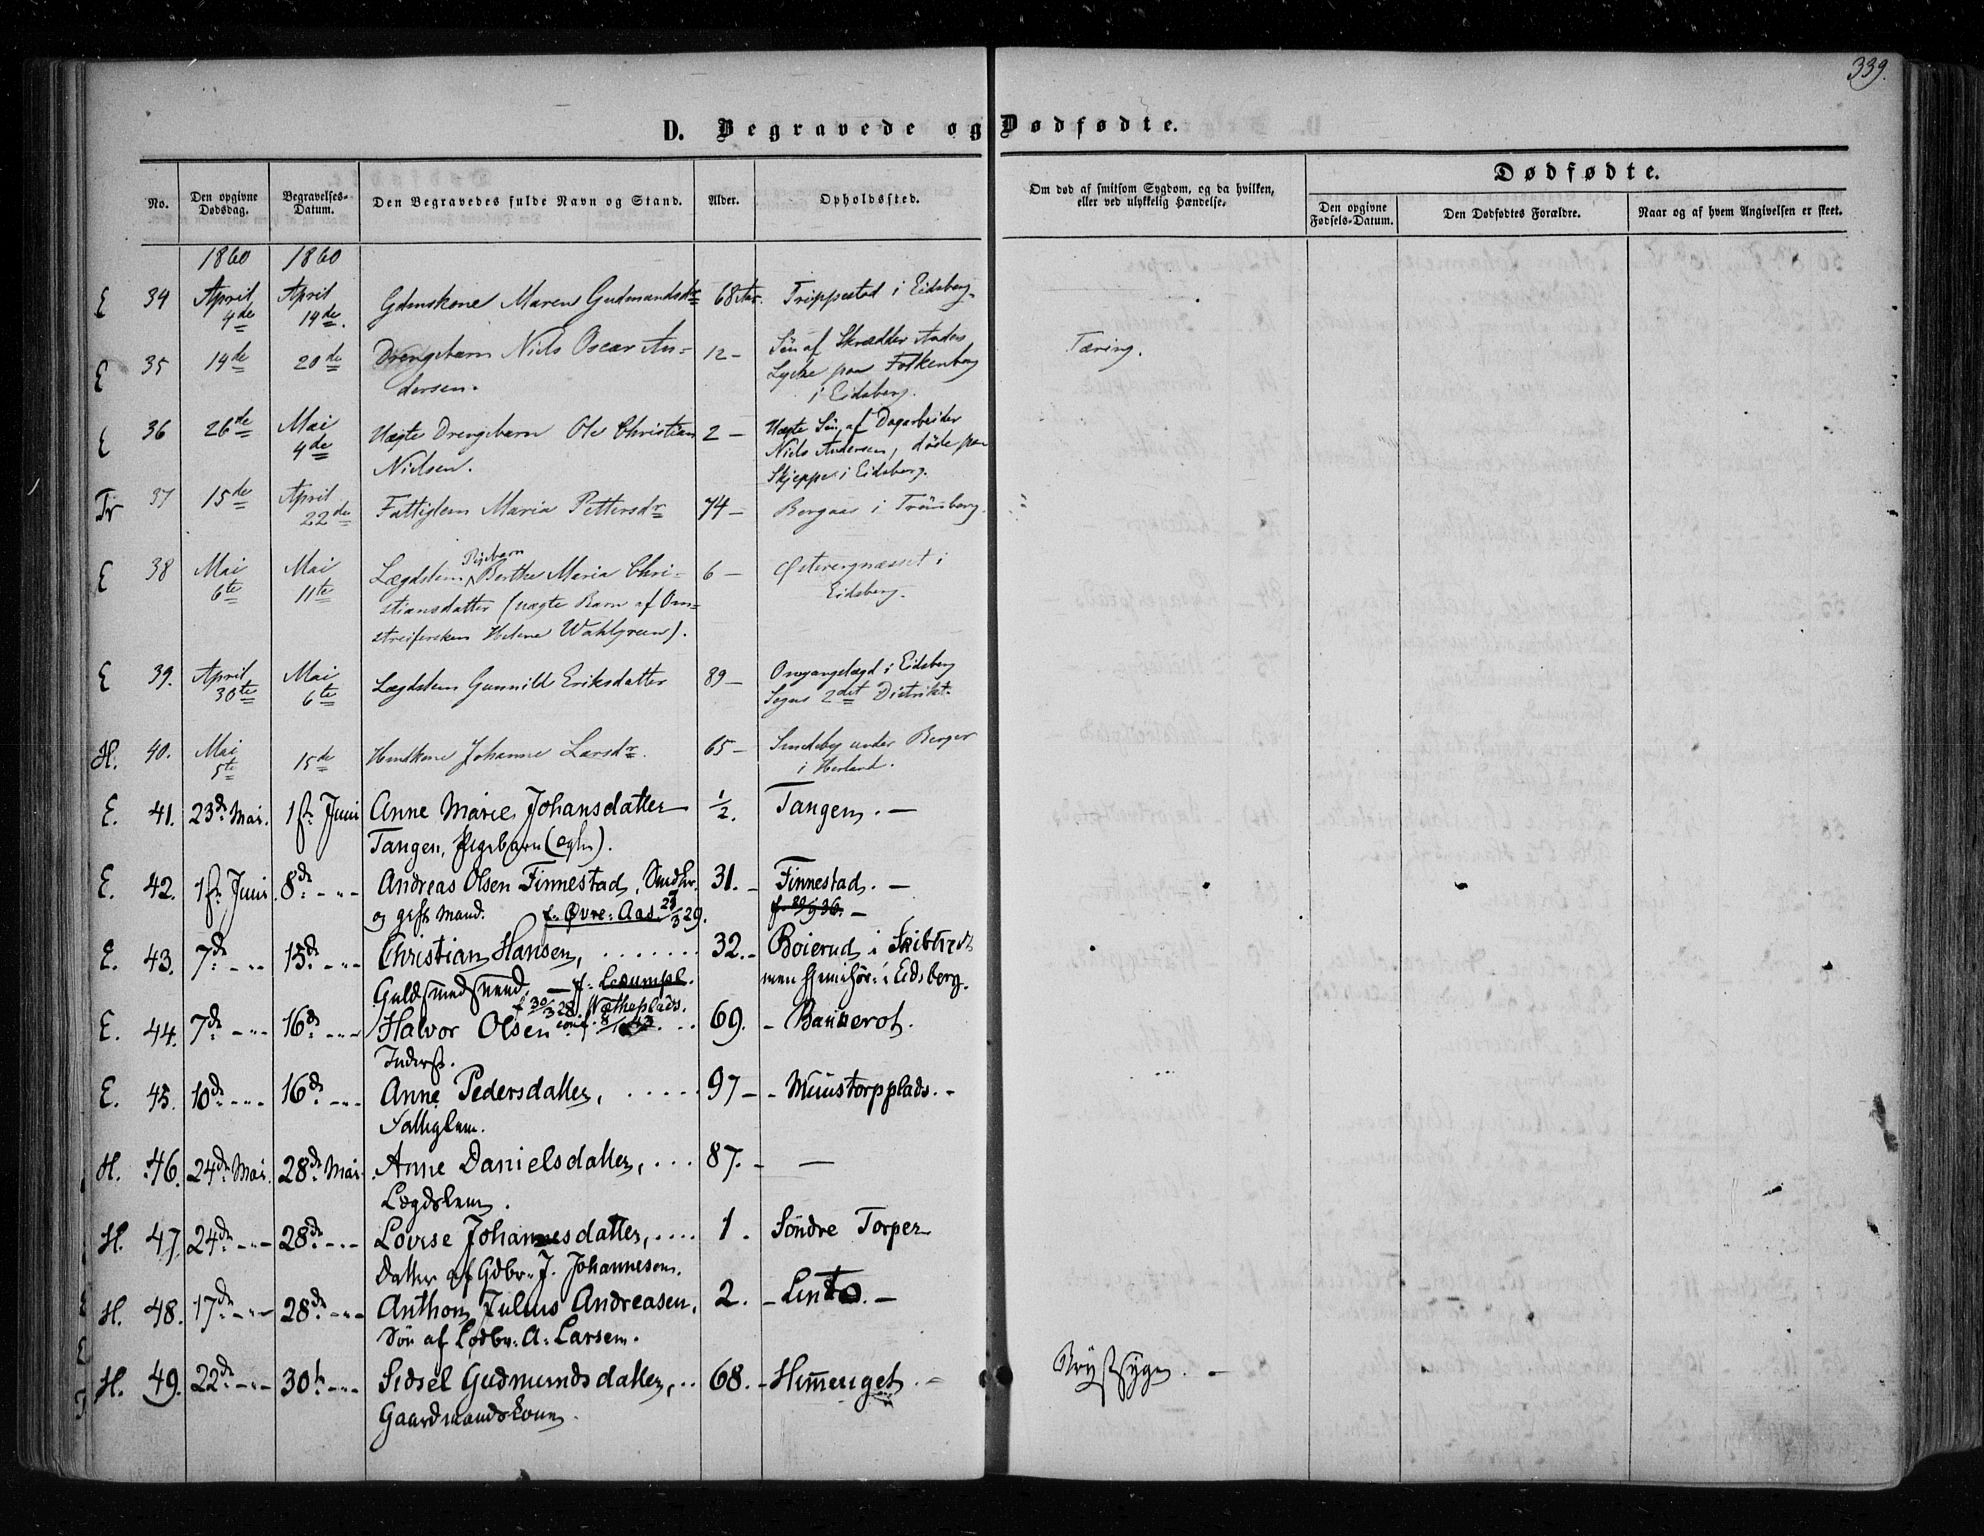 339.
D. Begravede og Dødfødte.
No.
Den opgivne Dødsdag.
Begravelses-Datum.
Den Begravedes fulde Navn og Stand.
Alder.
Opholdssted.
Om død af smitsom Sygdom, og da hvilken, eller ved ulykkelig Hændelse.
Dødfødte.
Den opgivne Fødsels-Datum.
Den Dødfødtes Forældre.
Naar og af hvem Angivelsen er skeet.
1860 1860
E 34 April 4de April 14de. Gdmskone Maren Gudmandsdr 68 Aar. Trippestad i Eidsberg.
E 35 14de 20de Drengebarn Niels Oscar An- 12 - Søn af Skrædder Anders Tæring.
dersen. Lycke paa Folkenborg
i Eidsberg.
E 36 26de Mai 4de Uægte Drengebarn Ole Christian 2 - Uægte Søn af Dagarbeider
Nielsen. Niels Andersen, døde paa
Skjeppe i Eidsberg.
Tr 37 15de April 22de Fattiglem Maria Pettersdr 74 - Bergaas i Trømborg.
E 38 Mai 6te Mai 11te Lægdslem Pigebarn Berthe Maria Chri- 6 - Østerengnæsset i
stiansdatter (uægte Barn af Om- Eidsberg.
streifersken Helene Wahlgreen).
E 39. April 30te Mai 6te Lægdslem Gunnild Eriksdatter 89 - Omgangslægd i Eidsberg
Sogns 2det Distrikt.
H. 40. Mai 5te 15de Huuskone Johanne Larsdr. 65 - Sundsby under Berger
i Herland.
E. 41. 23de Mai. 1ste Juni Anne Marie Johansdatter ½. Tangen. -
Tangen, Pigebarn (ægte).
E. 42. 1ste Juni. 8de - " - Andreas Olsen Finnestad, 31. - Finnestad. -
og gift Mand. f. Øvre-Aas 29.
E. 43. 7de - " - 15de - " - Christian Hansen, 32. - Boierud i Skibtvedt
Guldsmedsvend. men i Eidsberg.
f. 30/3 28.
E. 44. 7de - " - 16de - " - Halvor Olsen conf. 69. - Bankerot.
Inderst.
E. 45. 10de - " - 16de - " - Anne Pedersdatter, 97 - - Muustorpplads. -
Fattiglem.
H. 46. 24de Mai. 28de Mai Anne Danielsdatter, 87. - -
Lægdslem.
H. 47. 24de - " - 28de - " - Lovise Johannesdatter, 1. Söndre Torper
Datter af Gdbr. J. Johannesen.
H. 48. 17de - " - 28de - " - Anthon Julius Andreasen, 2. - Linto. -
Søn af A. Larsen.
H. 49. 22de - " - 30te - " - Sidsel Gudmundsdatter, 68. - Himmeriget. - Brystsyge. -
Gaardmandskone.